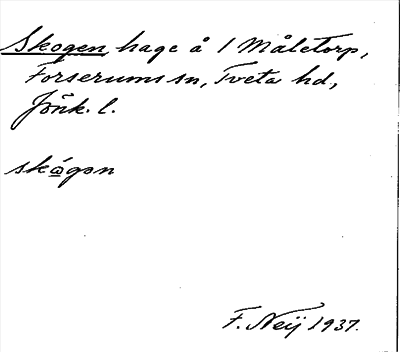 Skogen, hage å 1 Måletorp,
Forserums sn, Tveta hd,
Jönk. l.
skógən
F. Neij 1937.